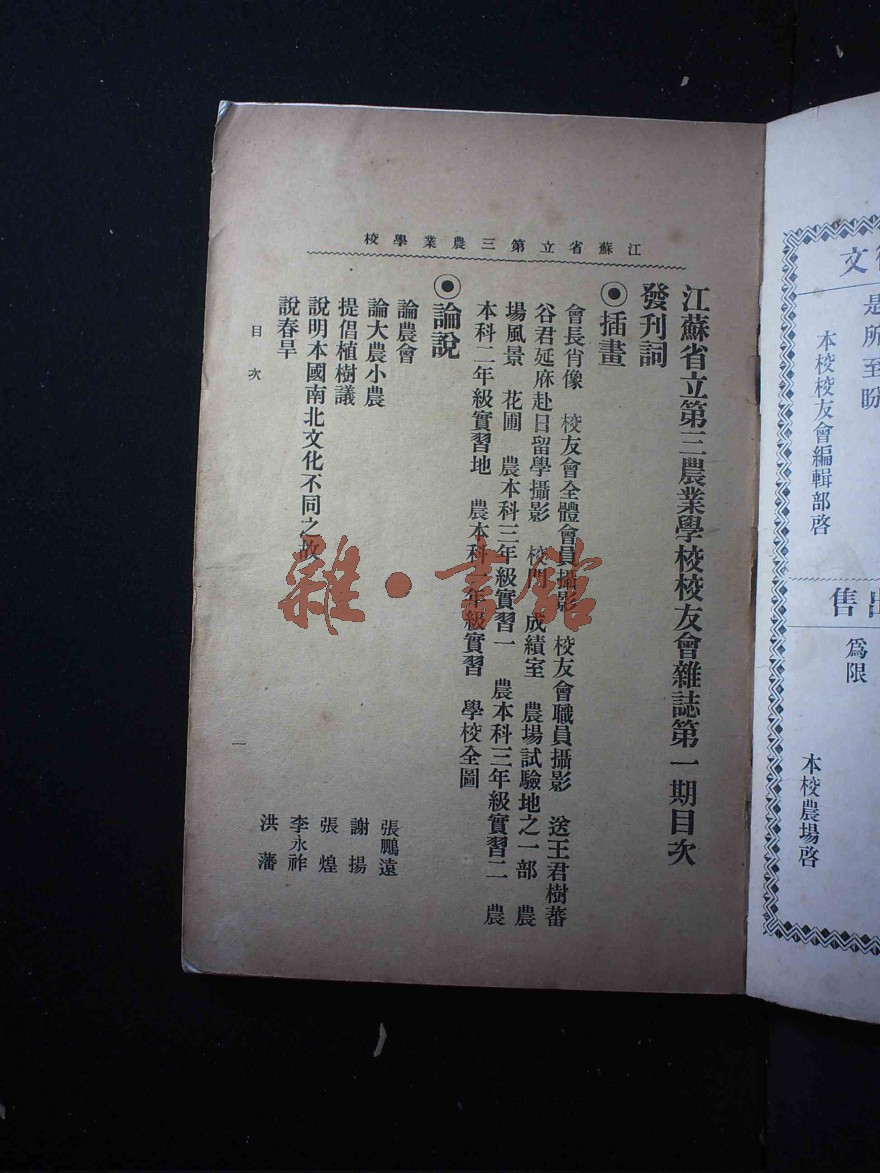 江蘇省立第三農業學校
江蘇省立第三農業學校校友會雜誌第一期目次
發刊詞
◉插畫
會長肖像　校友會全體會員攝影　校友會職員攝影　送王君樹蕃
谷君延庥赴日留學攝影　校門　成績室　農場試驗地之一部　農
場風景　花圃　農本科三年級實習一　農本科三年級實習二　農
本科二年級實習地　農本科一年級實習　學校全圖
◉論說
論農會　張鵬遠
論大農小農　謝揚
提倡植樹議　張煌
說明本國南北文化不同之故　李永祚
說春旱　洪藩
目次
一
雜·書館
文
是所至盼
本校校友會編輯部啓
售出
爲限
本校農場啓